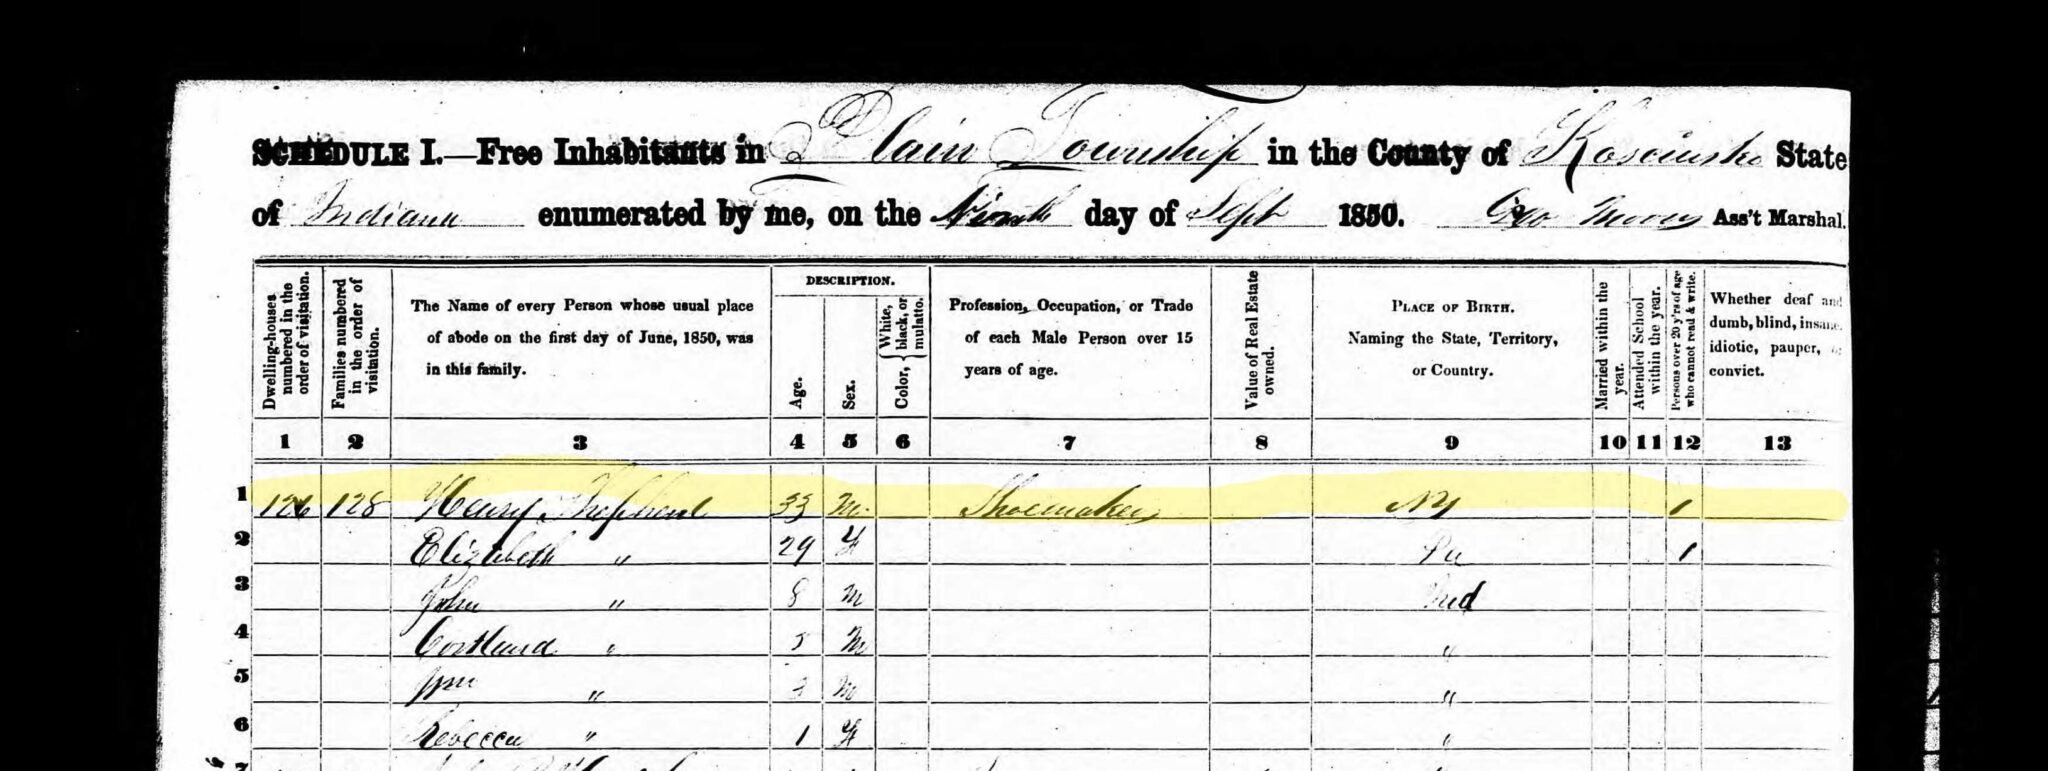 SCHEDULE I.—Free Inhabitants in Plain Township in the County of Kosciusko State
of Indiana enumerated by me, on the Ninth day of Sept 1850. Geo Ass't Marshal.
DESCRIPTION.
Dwelling-houses numbered in the order of visitation.
Families numbered in the order of visitation.
The Name of every Person whose usual place
of abode on the first day of June, 1850, was
in this family.
Age.
Sex.
Color, { White, black, or mulatto.
Profession, Occupation, or Trade
of each Male Person over 15
years of age.
Value of Real Estate owned.
PLACE OF BIRTH.
Naming the State, Territory,
or Country.
Married within the year.
Attended School within the year.
Persons over 20 y'rs of age who cannot read & write.
Whether deaf and
dumb, blind, insane,
idiotic, pauper,
convict.
1 2 3 4 5 6 7 8 9 10 11 12 13
1 126 128 Henry Shepherd 33 M Shoemaker NY 1
2 Elizabeth " 29 F Pa 1
3 John " 8 M Ind
4 Cortland " 5 M "
5 Wm " M "
6 Rebecca " 1 F "
7